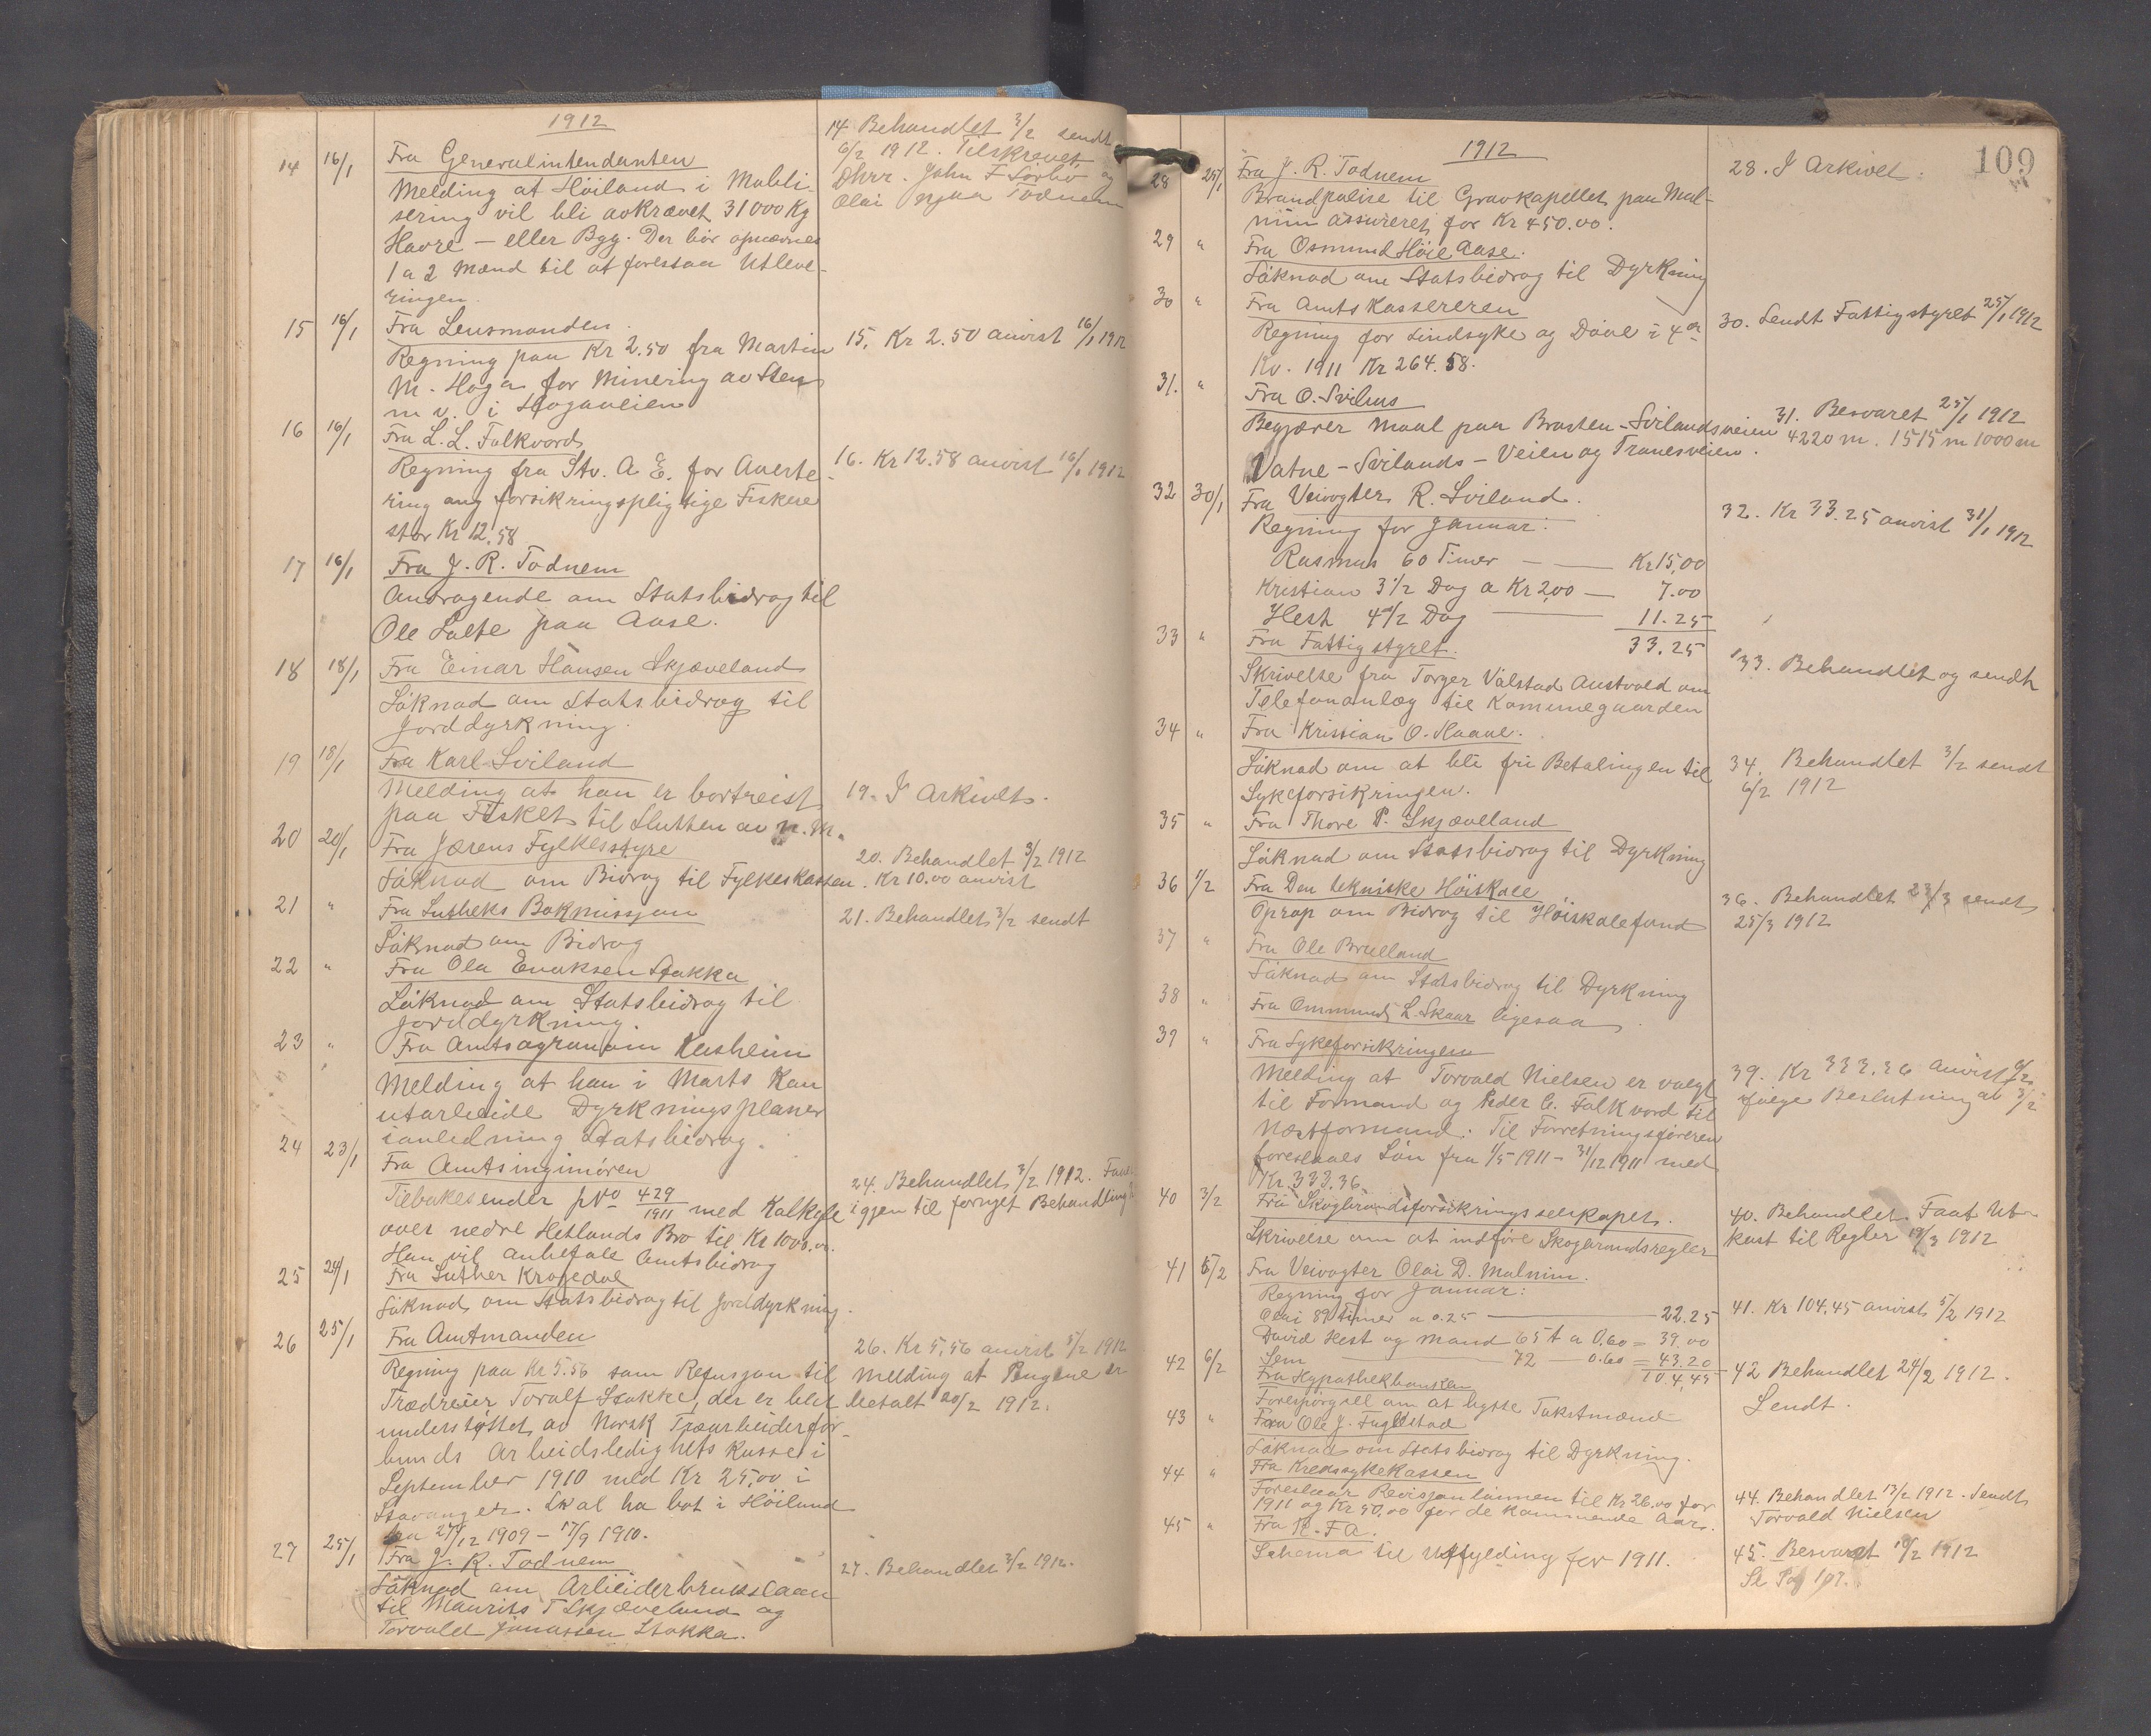 1912
14 16/1 Fra Generalintendanten
Melding at Höiland i Mobili-
sering vil bli avkrævet 31000 Kg
Havre - eller Byg. Der bör opnævnes
1 a 2 Mænd til at forestaa Utleve-
ringen.
14 Behandlet 3/2 sendt
6/2 1912. Tilskrevet
Dhrr. John F Sörbö og
Olai Njaa Todnem
15 16/1 Fra Lensmanden.
Regning paa Kr 2.50 fra Martin
M. Hoga for Minering av Sten
m v. i Hogaveien
15. Kr 2.50 anvist 16/1 1912
16 16/1 Fra L. L. Falkvord
Regning fra Stv. A E. for Averte-
ring ang forsikringspligtige Fiskere
stor Kr 12.58
16. Kr 12.58 anvist 16/1 1912
17 16/1 Fra J. R. Todnem
Andragende om Statsbidrag til
Ole Salte paa Aase.
18 18/1 Fra Einar Hansen Skjæveland
Söknad om Statsbidrag til
Jorddyrkning.
19 18/1 Fra Karl Sviland
Melding at han er bortreist
paa Fisket til Slutten av n. M.
19. I Arkivet.
20 20/1 Fra Jærens Fylkesstyre
Söknad om Bidrag til Fylkeskassen.
20. Behandlet 3/2 1912
Kr 10.00 anvist
21 " Fra Lutherks Bokmissjon
Söknad om Bidrag
21. Behandlet 3/2 sendt
22 " Fra Ola Enoksen Stokka
Söknad om Statsbidrag til
Jorddyrkning.
23 " Fra Amtsagronom
Melding at han i Marts kan
utarbeide Dyrkningsplaner
ianledning Statsbidrag.
24 23/1 Fra Amtsingeniören
Tilbakesender No 429/1911 med Kalkyle
over nedre Hetlands Bro til Kr 1000.00.
Han vil anbefale Amtsbidrag
24. Behandlet 3/2 1912.
igjen til fornyet Behandling
25 24/1 Fra Luther Krogedal
Söknad om Statsbidrag til Jorddyrkning.
26 25/1 Fra Amtmanden
Regning paa Kr 5.56 som Refusjon til
Trædreier Toralf Stokke, der er blit
understöttet av Norsk Træarbeiderfor-
bunds Arbeidsledighets Kasse i
September 1910 med Kr 25,00 i
Stavanger. Skal ha bot i Höiland
fra 27/12 1909 - 17/9 1910.
26. Kr 5,56 anvist 5/2 1912
Melding at Pengene er
betalt 20/2 1912.
27 25/1 Fra J. R. Todnem
Söknad om Arbeiderbrukslaan
til Maurits T Skjæveland og
Torvald Jonassen Stokka.
27. Behandlet 3/2 1912.
109
1912
28 25/1 Fra J. R. Todnem
Brandpolise til Gravkapellet paa Mal-
min assureret for Kr 450.00.
28. I Arkivet.
29 " Fra Osmund Höie Aase.
Söknad om Statsbidrag til Dyrkning
30 " Fra Amtskassereren
Regning for Sindsyke og Döve i 4de
Kv. 1911 Kr 264.58.
30. Sendt Fattigstyret 25/1 1912
31. " Fra O. Svihus
Begjærer Maal paa Brasten-Svilandsveien
Vatne-Svilands-Veien og Tranesveien.
31. Besvaret 25/1 1912
4220 m. 1515 m 1000 m
32 30/1 Fra Veivogter R. Sviland.
Regning for Januar:
Rasmus 60 Timer — — Kr 15,00
Kristian 3 1/2 Dag a Kr 2,00 — 7.00
Hest 4 1/2 Dag — 11.25
33.25
32. Kr 33.25 anvist 31/1 1912
33 " Fra Fattigstyret.
Skrivelse fra Torger Valstad Austvold om
Telefonanlæg til Kommunegaarden
33. Behandlet og sendt
34 " Fra Kristian O. Haave.
Söknad om at bli fri Betalingen til
Sykeforsikringen.
34. Behandlet 3/2 sendt
6/2 1912
35 " Fra Thore P. Skjæveland
Söknad om Statsbidrag til Dyrkning
36 1/2 Fra Den tekniske Höiskole
Oprop om Bidrag til Höiskolefond
36. Behandlet 23/3 sendt
25/3 1912
37 " Fra Ole Bruland
Söknad om Statsbidrag til Dyrkning
38 " Fra Ommund L. Skaar ligesaa.
39 " Fra Sykeforsikringen
Melding at Torvald Nielsen er valgt
til Formand og Peder C. Falkvord til
Næstformand. Til Forretningsföreren
foreslaaes Lön fra 1/5 1911 - 31/12 1911 med
Kr. 333.36
39. Kr 333.36 anvist 6/2
ifölge Beslutning av 3/2
40 3/2 Fra Skogbrandsforsikringsselskapet.
Skrivelse om at indföre Skogbrandsregler
40. Behandlet. Faat Ut-
kast til Regler 19/3 1912
41 5/2 Fra Veivogter Olai D. Malmin.
Regning for Januar:
Olai 89 Timer a 0.25 — 22.25
David Hest og Mand 65 t a 0.60 = 39.00
Sem — 72 — 0.60 = 43.20
104,45
41. Kr 104,45 anvist 5/2 1912
42 6/2 Fra Hypothekbanken
Forespörgsel om at bytte Takstmænd
42 Behandlet 24/2 1912.
Sendt.
43 " Fra Ole J. Fuglestad
Söknad om Statsbidrag til Dyrkning.
44 " Fra Kredssykekassen
Foreslaar Revisjonslönnen til Kr 26.00 for
1911 og Kr 50,00 for de kommende Aar.
44. Behandlet 13/2 1912. Sendt
Torvald Nielsen
45 " Fra K. F A.
Schema til Utfylding for 1911.
45. Besvaret 10/2 1912
Se Pag 107.